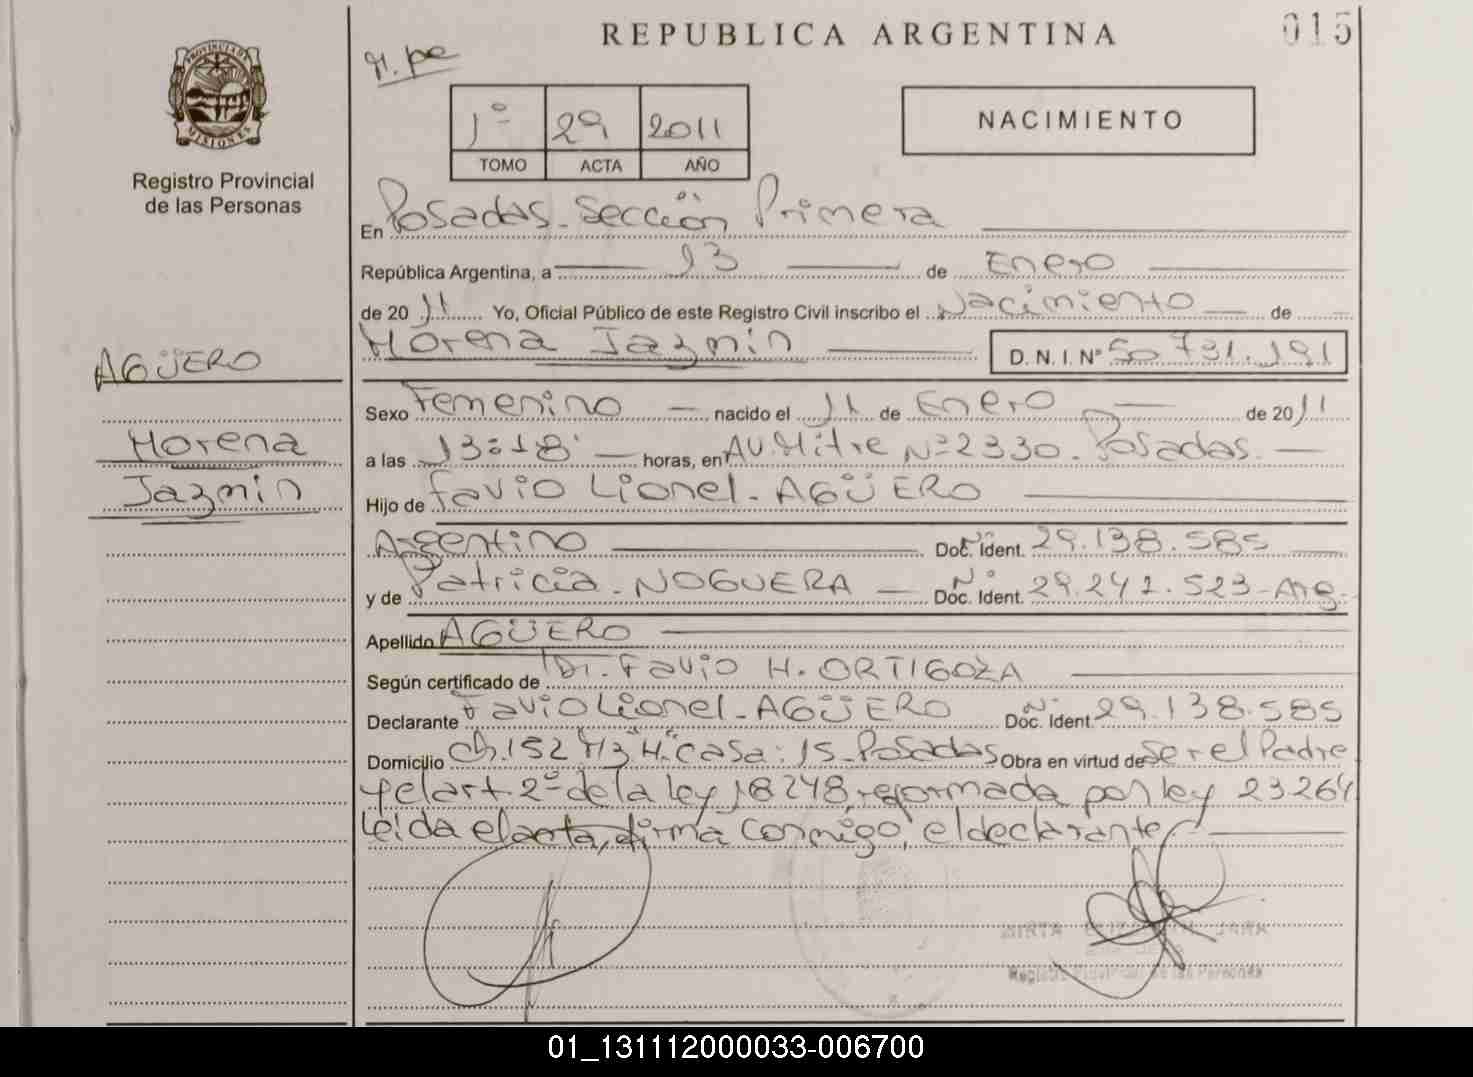 REPUBLICA ARGENTINA
015
PROVINCIA DE
MISIONES
Registro Provincial
de las Personas
1º 29 2011
TOMO ACTA AÑO
NACIMIENTO
En Posadas - Sección Primera
República Argentina, a 13 de Enero
de 2011 Yo, Oficial Público de este Registro Civil inscribo el Nacimiento de
Morena Jazmin D. N. I. Nº 50 731.191
AGÜERO
Morena
Jazmin
Sexo Femenino nacido el 11 de Enero de 2011
a las 13:18 horas, en AV. Mitre Nº 2330. Posadas.
Hijo de Favio Lionel - AGÜERO
Argentino Doc. Ident. Nº 29.138.585
y de Patricia - NOGUERA Doc. Ident. Nº 29.242.523 - Arg.
Apellido AGÜERO
Según certificado de Dr. Favio H. ORTIGOZA
Declarante Favio Lionel - AGÜERO Doc. Ident. Nº 29.138.585
Domicilio Ch. 152 Mz "H" casa: 15 - Posadas Obra en virtud de Ser el Padre
y el art 2º de la ley 18248, reformada por ley 23264
leida el acta, firma conmigo, el declarante
Registro Provincial de las Personas
01_131112000033-006700